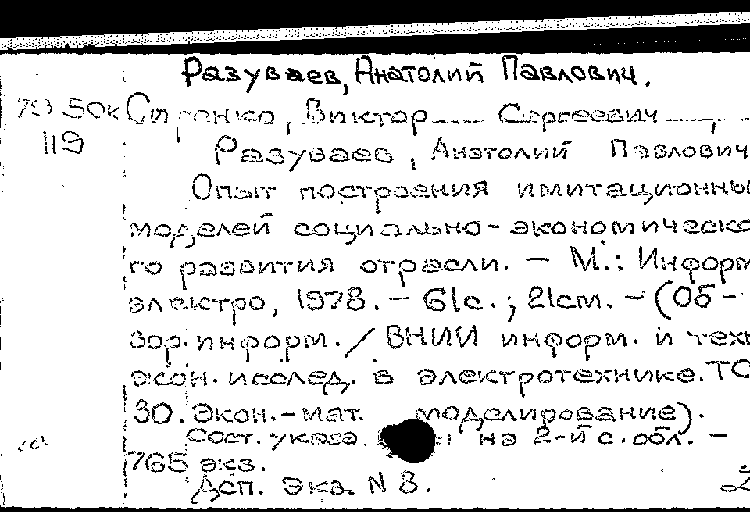 Разуваев, Анатолий Павлович.
Виктор Сергеевич,
119
Разуваев, Анатолий Павлович
Опыт построения имитационны
моделей социально-экономическо
го развития отрасли. – М.: Информ
электро, 1978. – 61с.; 21см. – (Об-
зор. информ. / ВНИИ информ. и техн
экон. исслед. в электротехнике. ТС
30. Экон.-мат. моделирование).
Сост. указ. на 2-й с. обл. –
765 экз.
Дсп. Экз. N 3.